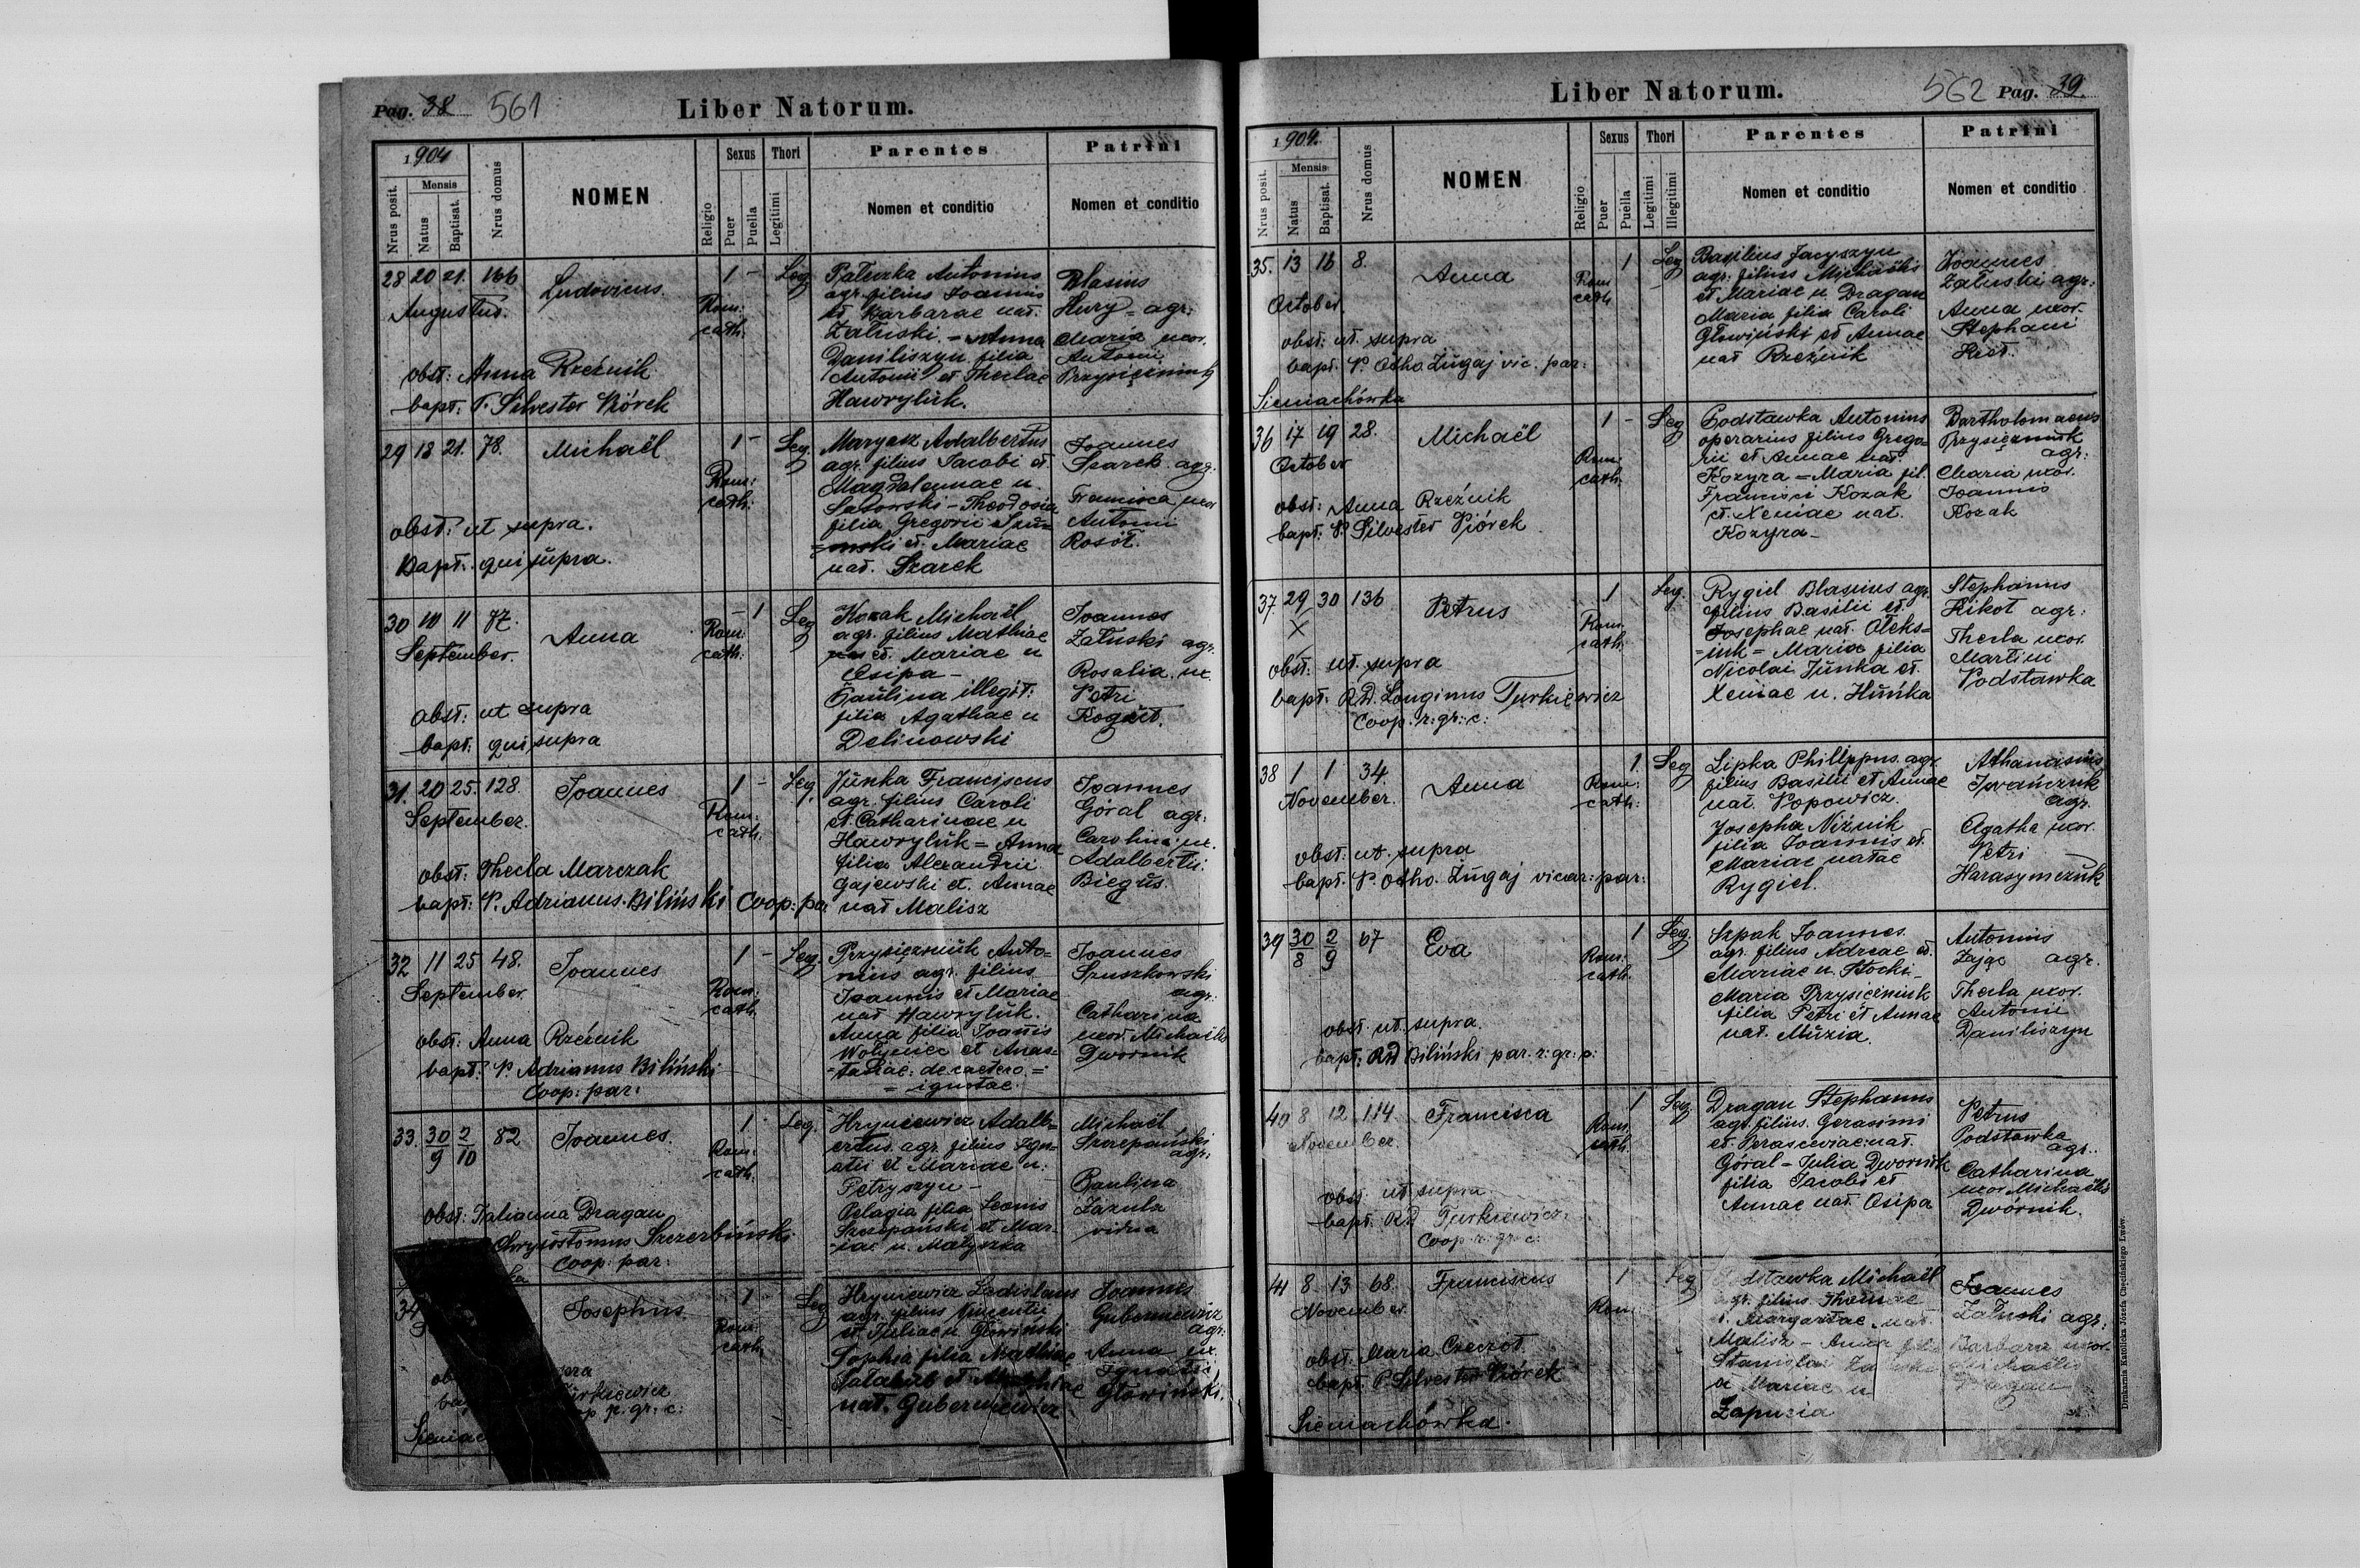 Pag. 38 561
Liber Natorum.
1904
Nrus posit.
Mensis
Natus
Baptisat.
Nrus domus
NOMEN
Religio
Sexus
Puer
Puella
Thori
Legitimi
Parentes
Nomen et conditio
Patrini
Nomen et conditio
28 20 21. 166 Ludovicus 1 - Leg
Augustus.
Rom:
cath:
obst: Anna Rzeźnik
bapt: P. Silvester Piórek
Pałuzka Antonius
agr. filius Joannis
et Barbarae nat.
Załuski. - Anna
Daniliszyn filia
Antonii et Theclae
Hawryluk.
Blasius
Hury = agr:
Maria uxor.
Antonii
Przysiężniuk
29 18 21. 78. Michaël 1 - Leg.
Rom:
cath:
obst: ut supra.
Bapt: qui supra.
Marysz Adalbertus
agr. filius Jacobi et
Magdalenae n.
Sałowski - Theodosia
filia Gregorii
et. Mariae
nat. Szarek
Joannes
Szarek agr.
Francisca uxor
Antonii
Rosół.
30 10 11 77. Anna - 1 Leg
September.
Rom:
cath:
obst: ut supra
bapt: qui supra
Kozak Michaël
agr. filius Mathiae
et. Mariae n
Osipa -
Paulina illegit:
filia Agathae n
Delinowski
Joannes
Załuski agr.
Rosalia. ux.
Petri
Kogut.
31. 20 25. 128. Joannes 1 - Leg.
September.
Rom:
cath:
obst: Thecla Marczak
bapt: P. Adrianus Biliński Coop: par
Junka Franciscus
agr. filius Caroli
et. Catharinae n
Hawryluk = Anna
filia Alexandrii
Gajewski et. Annae
nat Malisz
Joannes
Góral agr:
Carolina ux.
Adalbertii
Biegus.
32 11 25 48. Joannes 1 - Leg.
September
Rom:
cath.
obst: Anna Rzeźnik
bapt: P. Adrianus Biliński
Coop: par:
Przysiężniuk Anto=
nius agr. filius
Joannis et Mariae
nat Hawryluk.
Anna filia Joanis
Wołyniec et Anas=
=tasiae: de caetero =
= ignotae.
Joannes
Szuszkowski
agr:
Catharina
uxor. Michaelis
Dwornik
33. 30/9 2/10 82 Joannes. 1 Leg.
Rom:
cath.
obst: Tatianna Dragan
Chrysostomus Szczerbiński
Coop: par:
Hryniewicz Adalb=
ertus. agr. filius Ign=
atii et Mariae n.
Petryszyn -
Pelagia filia Leonis
Szczepański et Mar=
=iae n. Matyszka
Michaël
Szczepański
agr:
Paulina
Zazula
vidua
34 Josephus 1 Leg
Rom:
cath.
Turkiewicz
r. gr. c:
Hryniewicz Ladislaus
agr. filius Vincentii
et Juliae n Głowiński
Sophia filia Mathiae
nat. Guberniewicz
Joannes
Guberniewicz
agr:
Anna ux.
Ignatii
Głowiński.
Liber Natorum.
562 Pag. 39.
1904.
Nrus posit.
Mensis
Natus
Baptisat.
Nrus domus
NOMEN
Religio
Sexus
Puer
Puella
Thori
Legitimi
Illegitimi
Parentes
Nomen et conditio
Patrini
Nomen et conditio
35. 13 16 8. Anna 1 Leg
October
Rom
cath
obst: ut. supra
bapt. P. Otho Zugaj vic. par:
Sieniachówka
Basilius Jacyszyn
agr. filius Michaëlis
et Mariae n. Dragan
Maria filia Caroli
Głowiński et Annae
nat Rzeźnik
Joannes
Załuski agr:
Anna uxor.
Stephani
36 17 19 28. Michaël 1 - Leg
October
Rom:
cath:
obst: Anna Rzeźnik
bapt: P. Silvester Piórek
Podstawka Antonius
operarius filius Grego=
rii et Annae nat.
Kozyra = Maria fil.
Francisci Kozak
et. Xeniae nat.
Kozyra -
Bartholomaeus
Przysiężniuk
agr:
Maria uxor.
Joannis
Kozak
37 29 30 136 Petrus 1 Leg.
X
Rom.
cath:
obst: ut. supra
bapt: RD. Longinus Turkiewicz
Coop. r: gr: c:
Rygiel Blasius agr.
filius Basilii et.
Josephae nat. Oleks=
=iuk = Maria filia
Nicolai Junka et.
Xeniae n. Huńka
Stephanus
Kikot agr:
Thecla uxor.
Martini
Podstawka
38 1 1 34 Anna 1. Leg
November.
Rom:
cath:
obst: ut. supra
bapt: P. Otho. Zugaj vicar: par:
Lipka Philippus. agr.
filius Basilii et Annae
nat. Popowicz.
Josepha Niźnik
filia Joannis et.
Mariae natae
Rygiel.
Athanasius
Iwańczuk
agr.
Agatha uxor.
Petri
Harasymczuk
39 30/8 2/9 67 Eva 1 Leg.
Rom:
cath.
obst. ut. supra.
bapt: RD Biliński par. r: gr: c:
Szpak Joannes.
agr. filius Adreae et.
Mariae n. Stocki -
Maria Przysiężniuk
filia Petri et Annae
nat. Muzia.
Antonius
Zając agr.
Thecla uxor.
Antonii
Daniliszyn
40 8 12 114 Francisca 1 Leg.
November
Rom.
cath
obst: ut supra
bapt: RD Turkiewicz
Coop r: gr: c:
Dragan Stephanus
agr. filius. Gerasimi
et. Parasceviae: nat.
Góral = Julia Dwornik
filia Jacobi et
Annae nat. Osipa
Petrus
Podstawka
agr.
Catharina
uxor Michaëlis
Dwornik.
41 8 13 68 Franciscus 1 Leg
November.
Rom
obst: Maria Czeczot
bapt. P. Silvester Piórek
Sieniachówka.
Podstawka Michaël
agr. filius Thomae
Margaritae nat.
Malisz - Anna fil
Stanislai
et Mariae n
Zapuzia
Joannes
Załuski agr:
Barbara uxor.
Michaëlis
Dragan
Drukarnia Katolicka Józefa Chęcińskiego Lwów.